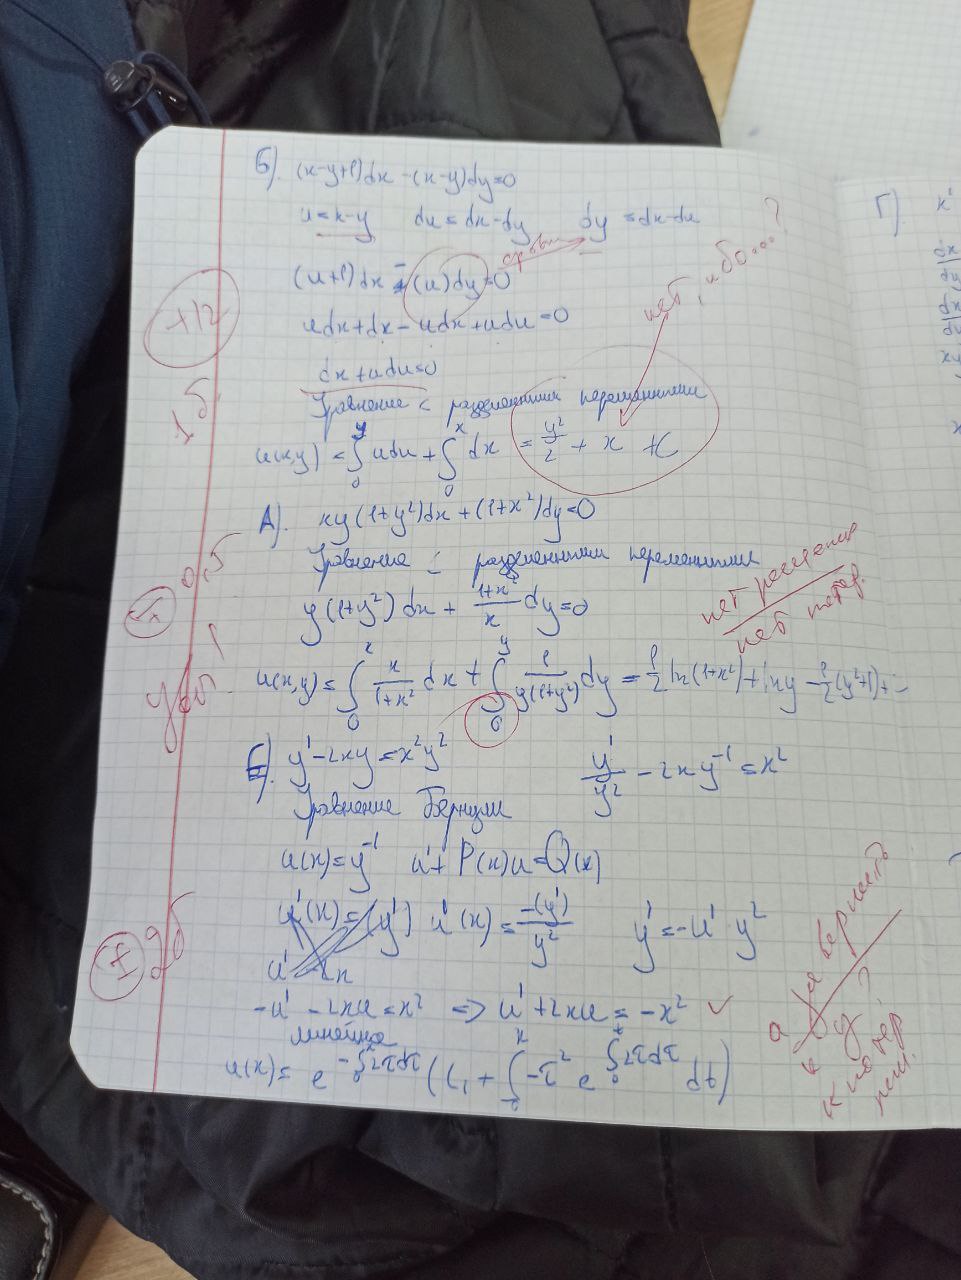 Б). (x-y+1)dx -(x-y)dy=0
u=x-y du=dx-dy dy=dx-du
(u+1)dx - (u)dy=0
udx+dx-udx+udu=0
dx+udu=0
Уравнение с разделёнными переменными
u(x,y)=∫₀ʸ udu+∫₀ˣ dx = y²/2 + x + C
нет, ибо....?
+/2
1,5
А). xy(1+y²)dx+(1+x²)dy=0
Уравнение с разделёнными переменными
y(1+y²)dx + (1+x²)/x dy=0
нет решения
нет потер.
0,5
u(x,y)=∫₀ˣ x/(1+x²) dx + ∫₀ʸ 1/(y(1+y²)) dy = 1/2 ln(1+x²)+lny-1/2(y²+1)+
E). y'-2xy=x²y² y'/y² - 2xy⁻¹=x²
Уравнение Бернулли
u(x)=y⁻¹ u'+P(x)u=Q(x)
u'(x)=-(y')/y² y'=-u'·y²
-u'-2xu=x² => u'+2xu=-x² ✓
линейка
u(x)=
а
вернуть
к y?
Г). x'
dx
dy
xy